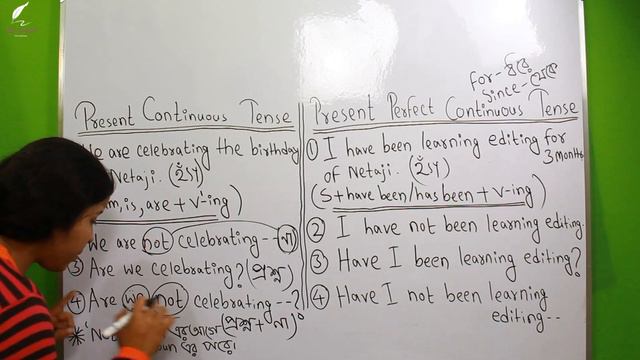 for - ধরে
Since - থেকে
Present Continuous Tense
We are celebrating the birthday
Netaji. (হ্যাঁ)
am, is, are + V-ing)
We are not celebrating -- (না)
③ Are we celebrating? (প্রশ্ন)
④ Are we not celebrating --?
(প্রশ্ন + না)
এর আগে
এর পরে।
Present Perfect Continuous Tense
① I have been learning editing for
3 months
of Netaji. (হ্যাঁ)
(S + have been/has been + V-ing)
② I have not been learning editing.
③ Have I been learning editing?
④ Have I not been learning
editing --